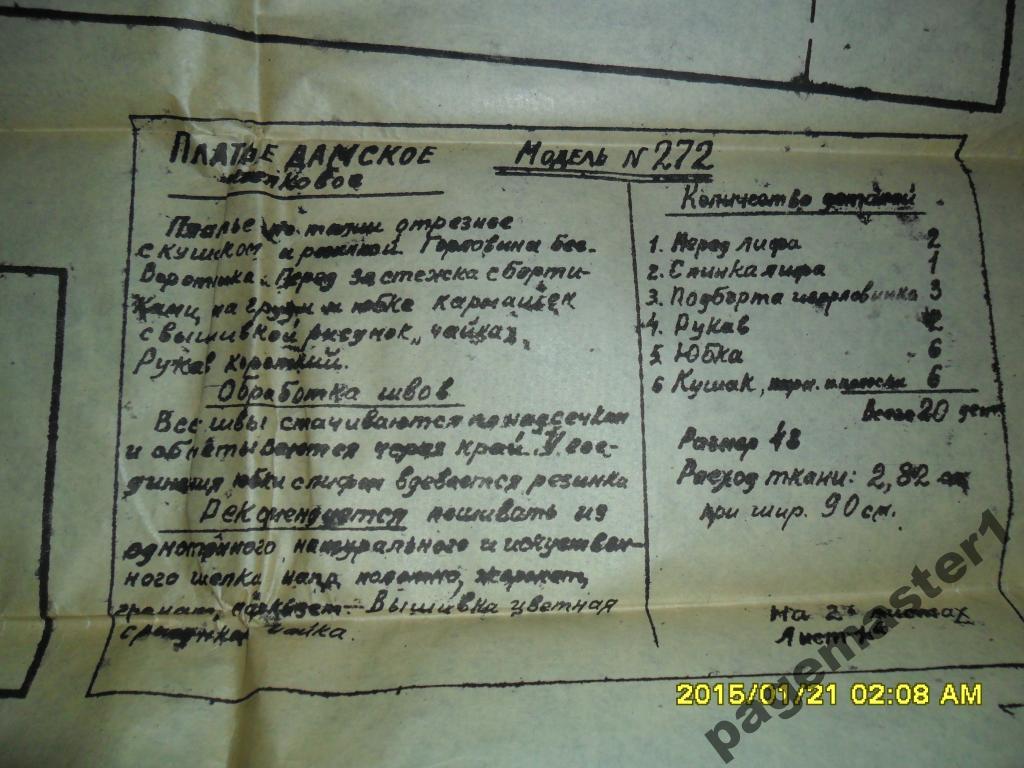 Платье дамское
Модель N 272
Платье по талии отрезное
с кушком и резинкой. Горловина без
Воротника. Перед застежка с борти-
ками, на груди и юбке кармашек
с вышивкой рисунок "чайка",
Рукав короткий.
Обработка швов
Все швы стачиваются по надсечкам
и обметываются через край. У сое-
динения юбки с лифом вдевается резинка
Рекомендуется пошивать из
однотонного натурального и искуствен-
ного шелка напр полотно,
гранат, Вышивка цветная
чайка.
Количество деталей
1. Перед лифа 2
2. Спинка лифа 1
3. Подборта и горловинка 3
4. Рукав 2
5 Юбка 6
6 Кушак, 6
Всего 20 дет
Размер 48
Расход ткани: 2,82 м
при шир. 90 см.
На 2х листах
Лист
2015/01/21 02:08 AM
pagemaster1